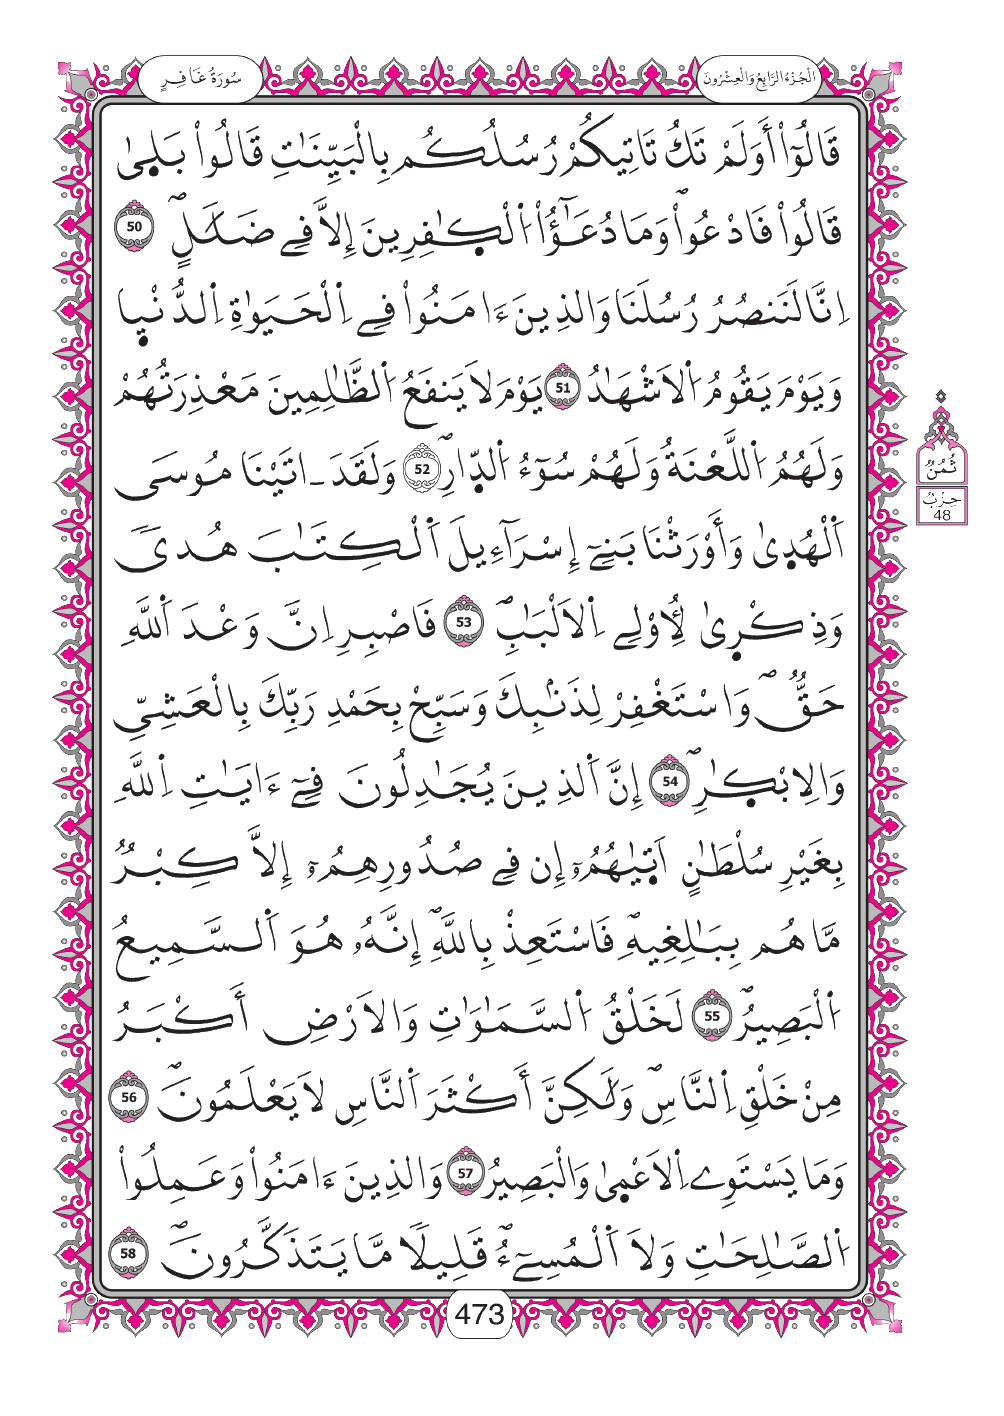 الْجُزْءُ الرَّابِعُ وَالْعِشْرُونَ
سُورَةُ غَافِرٍ
قَالُوٓاْ أَوَلَمْ تَكُ تَاتِيكُمْ رُسُلُكُم بِالْبَيِّنَٰتِ قَالُواْ بَلٜىٰ
قَالُواْ فَادْعُواْۖ وَمَا دُعَٰٓؤُاْ اُ۬لْكٰ۪فِرِينَ إِلَّا فِے ضَلَٰلٍۖ 50
اِنَّا لَنَنصُرُ رُسُلَنَا وَالذِينَ ءَامَنُواْ فِے اِ۬لْحَيَوٰةِ اِ۬لدُّنْي۪ا
وَيَوْمَ يَقُومُ اُ۬لَاشْهَٰدُ 51 يَوْمَ لَا يَنفَعُ اُ۬لظَّٰلِمِينَ مَعْذِرَتُهُمْ
وَلَهُمُ اُ۬للَّعْنَةُ وَلَهُمْ سُوٓءُ اُ۬لدّ۪ارِۖ 52 وَلَقَدَ ـ اتَيْنَا مُوسَى
اَ۬لْهُد۪ىٰ وَأَوْرَثْنَا بَنِےٓ إِسْرَآءِيلَ اَ۬لْكِتَٰبَ هُدىٗ
وَذِكْر۪ىٰ لِأُوْلِے اِ۬لَالْبَٰبِۖ 53 فَاصْبِرِ اِنَّ وَعْدَ اَ۬للَّهِ
حَقّٞۖ وَاسْتَغْفِرْ لِذَنۢبِكَ وَسَبِّحْ بِحَمْدِ رَبِّكَ بِالْعَشِيِّ
وَالِابْكٰ۪رِۖ 54 إِنَّ اَ۬لذِينَ يُجَٰدِلُونَ فِےٓ ءَايَٰتِ اِ۬للَّهِ
بِغَيْرِ سُلْطَٰنٍ اَت۪يٰهُمُۥٓ إِن فِے صُدُورِهِمُۥٓ إِلَّا كِبْرٞ
مَّا هُم بِبَٰلِغِيهِۖ فَاسْتَعِذْ بِاللَّهِۖ إِنَّهُۥ هُوَ اَ۬لسَّمِيعُ
اُ۬لْبَصِيرُۖ 55 لَخَلْقُ اُ۬لسَّمَٰوَٰتِ وَالَارْضِ أَكْبَرُ
مِنْ خَلْقِ اِ۬لنَّاسِۖ وَلَٰكِنَّ أَكْثَرَ اَ۬لنَّاسِ لَا يَعْلَمُونَۖ 56
وَمَا يَسْتَوِے اِ۬لَاعْم۪ىٰ وَالْبَصِيرُ 57 وَالذِينَ ءَامَنُواْ وَعَمِلُواْ
اُ۬لصَّٰلِحَٰتِ وَلَا اَ۬لْمُسِےٓءُۖ قَلِيلاٗ مَّا يَتَذَكَّرُونَۖ 58
ثُمُنُ
حِزْبُ
48
473